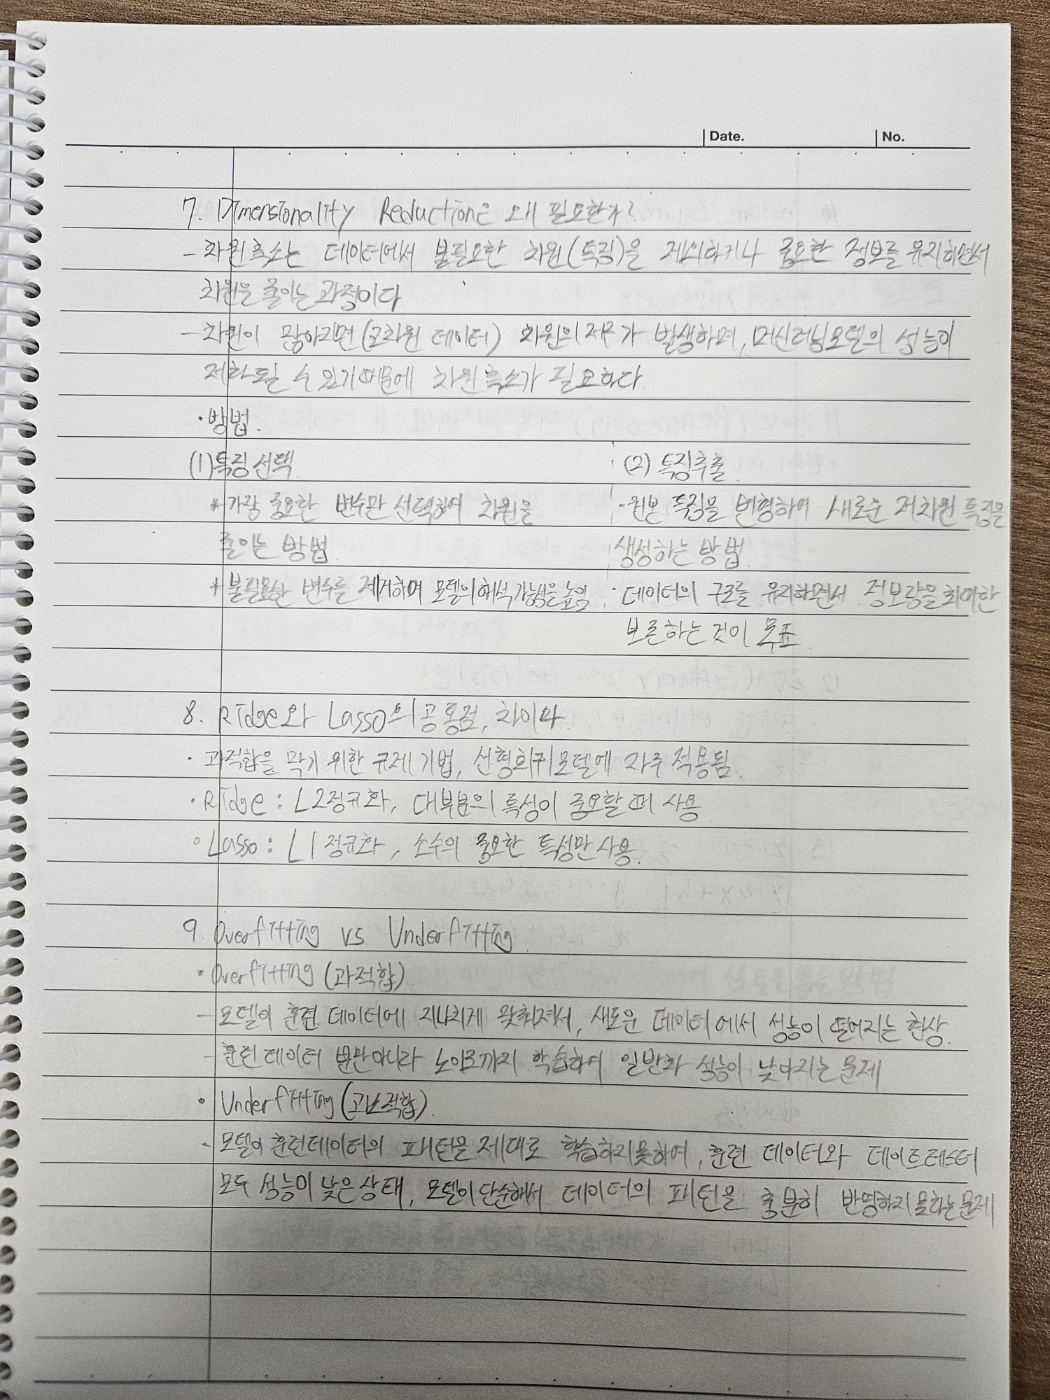 Date. No.
7. Dimensionality Reduction은 왜 필요한가?
- 차원축소는 데이터에서 불필요한 차원(특징)을 제거하거나 중요한 정보를 유지하면서
차원을 줄이는 과정이다
- 차원이 많아지면(고차원 데이터) 차원의 저주가 발생하며, 머신러닝모델의 성능이
저하될 수 있기 때문에 차원축소가 필요하다.
· 방법.
(1) 특징 선택.
* 가장 중요한 변수만 선택하여 차원을
줄이는 방법.
* 불필요한 변수를 제거하며 모델의 해석 가능성을 높임.
(2) 특징추출.
· 원본 특징을 변형하여 새로운 저차원 특징을
생성하는 방법.
· 데이터의 구조를 유지하면서 정보량을 최대한
보존하는 것이 목표.
8. Ridge와 Lasso의 공통점, 차이다.
· 과적합을 막기 위한 규제 기법, 선형회귀모델에 자주 적용됨.
· Ridge : L2정규화, 대부분의 특성이 중요할 때 사용
· Lasso : L1 정규화, 소수의 중요한 특성만 사용.
9. Overfitting vs Underfitting.
· Overfitting (과적합)
- 모델이 훈련 데이터에 지나치게 맞춰져서, 새로운 데이터에서 성능이 떨어지는 현상.
- 훈련 데이터 뿐만아니라 노이즈까지 학습하여 일반화 성능이 낮아지는 문제
· Underfitting (과소적합).
- 모델이 훈련데이터의 패턴을 제대로 학습하지못하여, 훈련 데이터와 데이트테스터
모두 성능이 낮은 상태, 모델이 단순해서 데이터의 패턴을 충분히 반영하지 못하는 문제